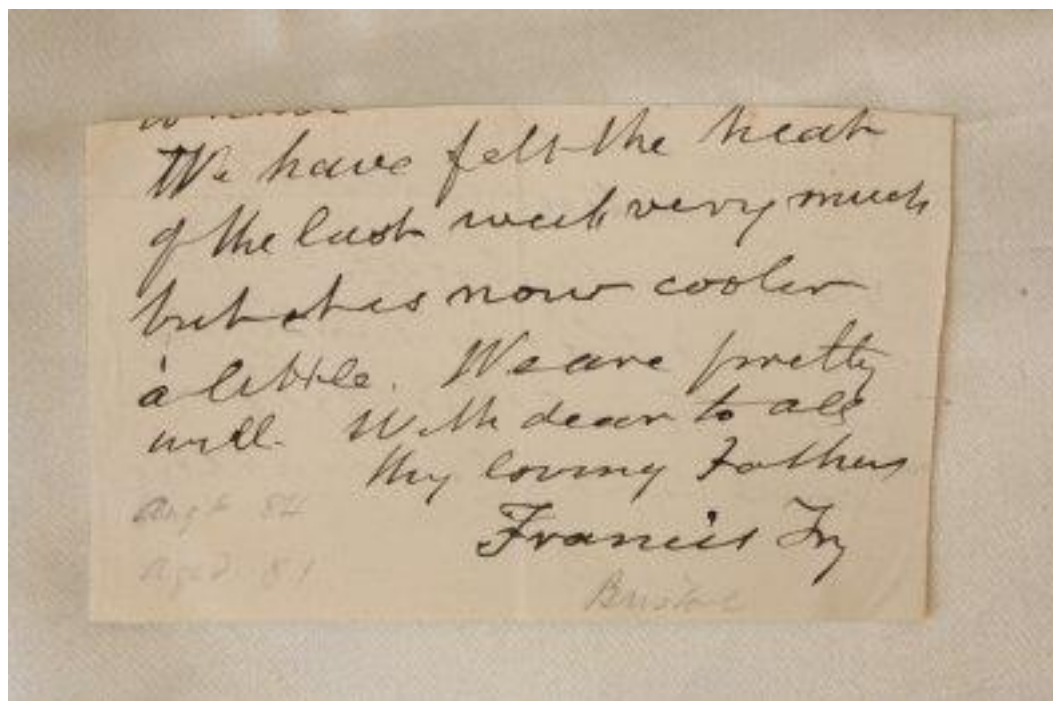 We have felt the heat
of the last week very much
but it is now cooler
a little. We are pretty
well. With dear to all
thy loving Father
Francis Fry
Augt 84
Aged 81
Bristol